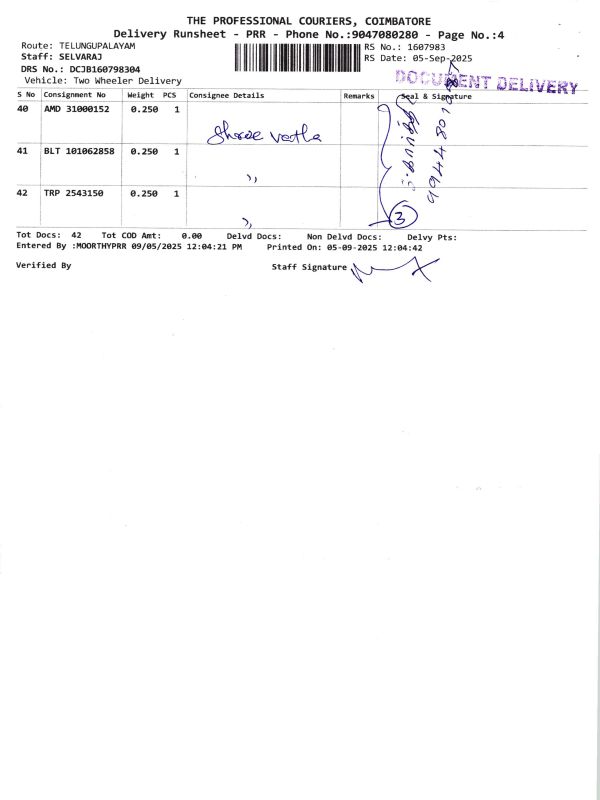 THE PROFESSIONAL COURIERS, COIMBATORE
Delivery Runsheet - PRR - Phone No.:9047080280 - Page No.:4
Route: TELUNGUPALAYAM
Staff: SELVARAJ
DRS No.: DCJB160798304
Vehicle: Two Wheeler Delivery
RS No.: 1607983
RS Date: 05-Sep-2025
DOCUMENT DELIVERY
S No Consignment No Weight PCS Consignee Details Remarks Seal & Signature
40 AMD 31000152 0.250 1 Shree vetha
41 BLT 101062858 0.250 1 ,,
42 TRP 2543150 0.250 1 ,, 3
Tot Docs: 42 Tot COD Amt: 0.00 Delvd Docs: Non Delvd Docs: Delvy Pts:
Entered By :MOORTHYPRR 09/05/2025 12:04:21 PM Printed On: 05-09-2025 12:04:42
Verified By Staff Signature